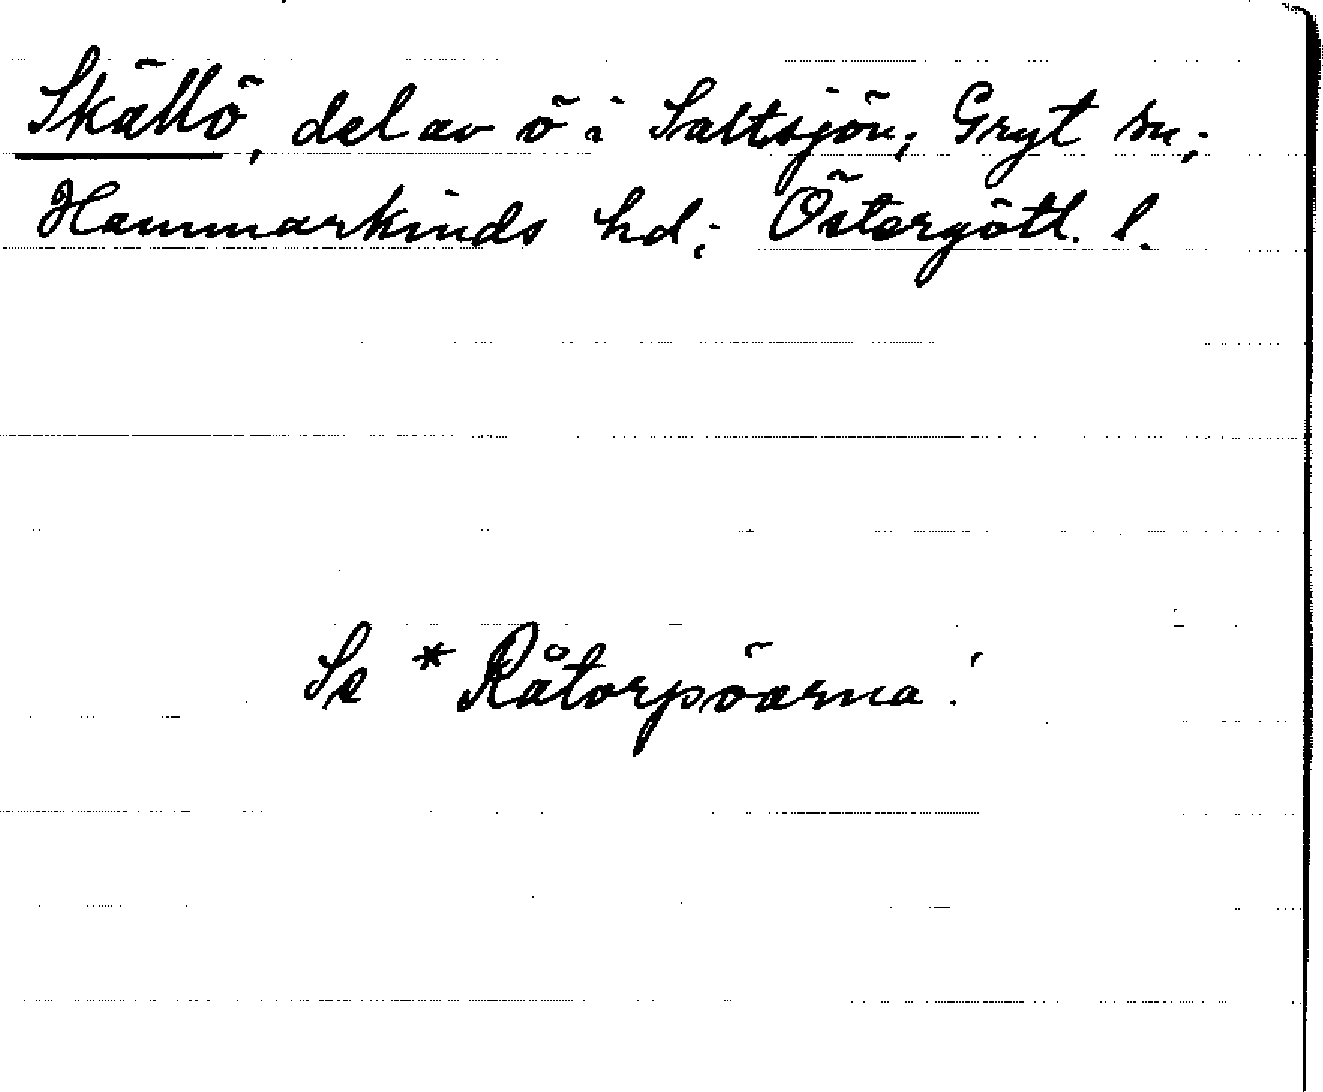 Skällö, del av ö i Saltsjön; Gryt sn;
Hammarkinds hd; Östergötl. l.
Se *Råtorpöarna!